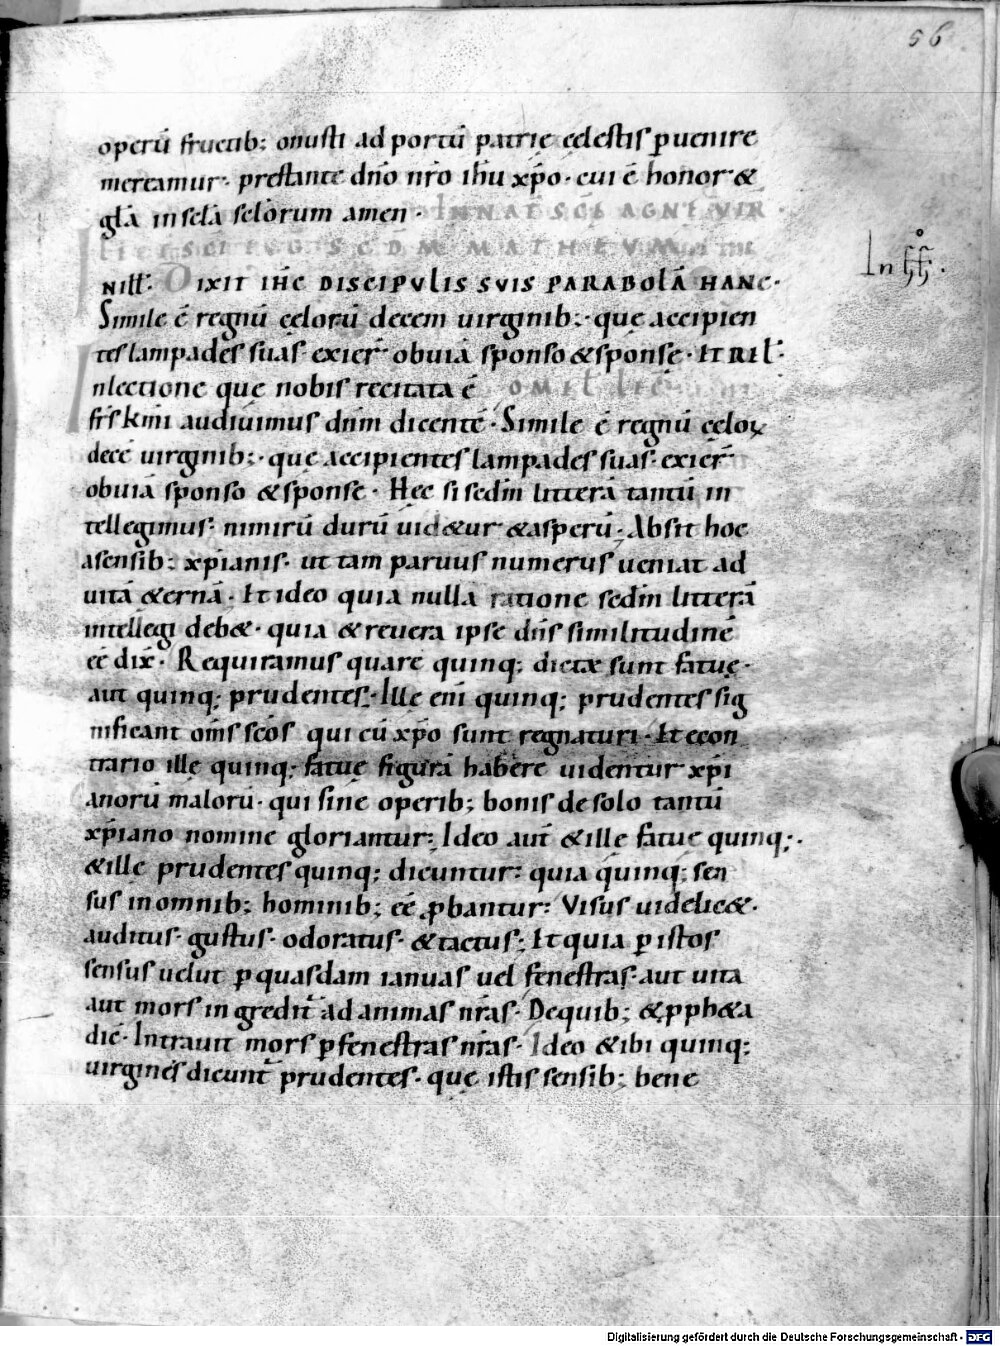 56
operū fructib; onusti ad portū patrię cęlestis puenire
mereamur · prestante dn̄o nr̄o ihu xp̄o · cui ē honor · &
gl̄a in scl̄a scl̄orum amen · IN NAT̄ SC̄E AGNĒ VIR
SC̄I EVḠ SC̄D̄M MATHEVM
In
NILL̄: DIXIT IHC DISCIPVLIS SVIS PARABOLĀ HANC ·
Simile ē regnū cęlorū decem uirginib; · quę accipien
tes lampades suas · exier̄ obuiā sponso & sponsę · ET RĪL ·
In lectione quę nobis recitata ē OMIL̄ LEC̄
fr̄s km̄i audiuimus dn̄m dicentē · Simile ē regnū cęloꝝ
decē uirginib; · quę accipientes lampades suas · exier̄
obuiā sponso & sponsę · Hęc si sed̄m litterā tantū in
tellegimus · nimirū durū uid&ur & asperū · Absit hoc
a sensib; xp̄ianis · ut tam paruus numerus ueniat ad
uitā &ernā · Et ideo quia nulla ratione sed̄m litterā
intellegi deb& · quia & reuera ipse dn̄s similitudinē
eē dix̄ · Requiramus quare quinq; dictæ sunt fatuę ·
aut quinq; prudentes · Ille en̄i quinq; prudentes sig
nificant om̄s sc̄os qui cū xp̄o sunt regnaturi · Et econ
trario ille quinq; fatuę figurā habere uidentur xp̄i
anorū malorū · qui sine operib; bonis de solo tantū
xp̄iano nomine gloriantur; Ideo aut̄ & ille fatuę quinq; ·
& ille prudentes quinq; dicuntur: quia quinq; sen
sus in omnib; hominib; eē ꝓbantur: Visus uidelic& ·
auditus · gustus · odoratus · & tactus; Et quia ꝑ istos
sensus uelut ꝑ quasdam ianuas uel fenestras · aut uita
aut mors ingredit̄ ad animas nr̄as · De quib; & ꝓph&a
dic̄ · Intrauit mors ꝑ fenestras nr̄as · Ideo & ibi quinq;
uirgines dicunt̄ prudentes · quę istis sensib; bene
Digitalisierung gefördert durch die Deutsche Forschungsgemeinschaft - DFG